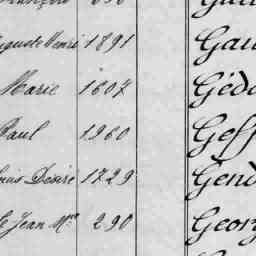 Auguste Henri 1891 Gau
Marie 1607 Géd
Paul 1960 Geff
Louis Désiré 1729 Gend
Jean Mie 290 Georg